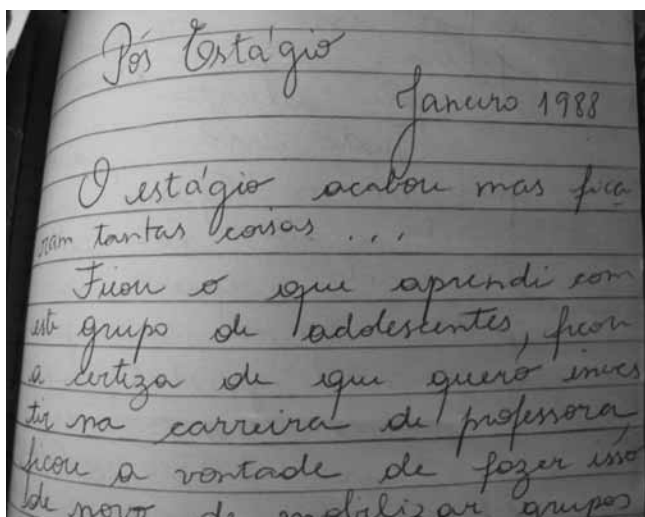 Pós Estágio
Janeiro 1988
O estágio acabou mas fica
ram tantas coisas ...
Ficou o que aprendi com
este grupo de adolescentes, ficou
a certeza de que quero inves
tir na carreira de professora,
ficou a vontade de fazer isso
de novo de mobilizar grupos